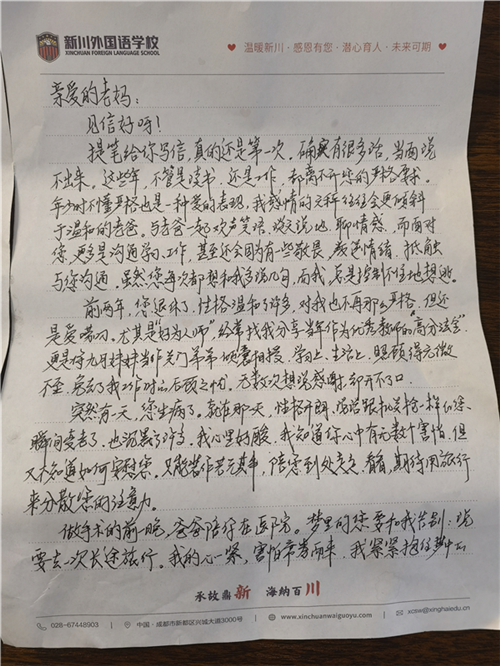 新川外国语学校
XINCHUAN FOREIGN LANGUAGE SCHOOL
温暖新川·感恩有您·潜心育人·未来可期
亲爱的老妈：
见信好呀！
提笔给你写信，真的还是第一次。确实有很多话，当面说
不出来。这些年，不管是读书，还是工作，都离不开您的严格要求。
年少时不懂严格也是一种爱的表现，我感情的天秤往往会更倾斜
于温和的老爸。与老爸一起欢声笑语，谈天说地，聊情感，而面对
您，更多是沟通学习、工作，甚至还会因为有一些敬畏、负面情绪，抵触
与您沟通。虽然您每次都想和我多说几句，而我总是控制不住地想逃。
前两年，您退休了，性格温和了许多，对我也不再那么严格，但还
是爱唠叨。尤其是“好为人师”，经常找我分享当年作为优秀教师的“高分法宝”，
更是将九月妹妹当作关门弟子倾囊相授。学习上、生活上，照顾得无微
不至，免去了我工作时的后顾之忧。无数次想说感谢，却开不了口。
突然有一天，您生病了。就在那一天，性格开朗，说话跟机关枪一样的您，
瞬间变老了，也沉默了许多。我心里好酸，我知道你心中有无数个害怕，但
又不知道如何安慰您。只能装作若无其事，陪您到处走走、看看，期待用旅行
来分散您的注意力。
做手术的前一晚，爸爸陪伴在医院。梦里的您要和我告别，说
要去一次长途旅行。我的心一紧，害怕席卷而来，我紧紧抱住梦中的
承故鼎新 海纳百川
028-67448903
中国·成都市新都区兴城大道3000号
www.xinchuanwaiguoyu.com
xcsw@xinghaiedu.cn